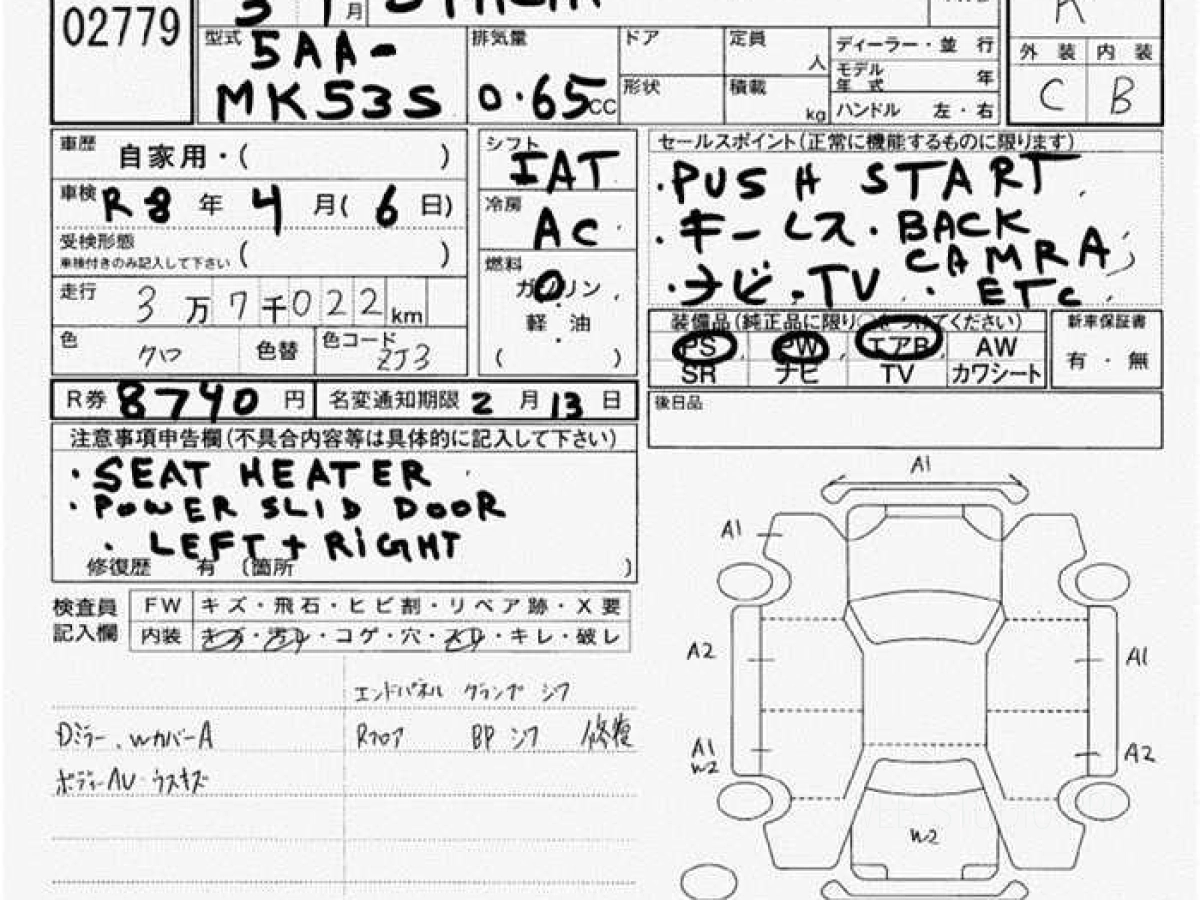 02779
月
型式 5AA-
MK53S
排気量
0.65 CC
ドア
形状
定員 人
積載 kg
ディーラー・並 行
モデル年式 年
ハンドル 左・右
外 装 内 装
C B
車歴 自家用・( )
車検 R8 年 4 月( 6 日)
受検形態
車検付きのみ記入して下さい ( )
走行 3 万 7 千 022 km
色 クロ 色替 色コード ZJ3
シフト IAT
冷房 AC
燃料
ガソリン
軽 油
( )
セールスポイント(正常に機能するものに限ります)
・PUSH START
・キーレス・BACK
CAMRA
・ナビ・TV ・ETC
装備品(純正品に限り○をつけてください)
PS PW エアB AW
SR ナビ TV カワシート
新車保証書
有・無
R券 8740 円 名変通知期限 2 月 13 日
後日品
注意事項申告欄(不具合内容等は具体的に記入して下さい)
・SEAT HEATER
・POWER SLID DOOR
・LEFT + RIGHT
修復歴 有 〔箇所 )
検査員
記入欄
FW キズ・飛石・ヒビ割・リペア跡・X要
内装 キズ・汚レ・コゲ・穴・スレ・キレ・破レ
エンドパネル クランプ シフ
Dミラー、Wカバー A Rフロア BP シフ 修復
ボディーAU ウスキズ
A1
A1
A2
A1
A1
W2
A2
W2